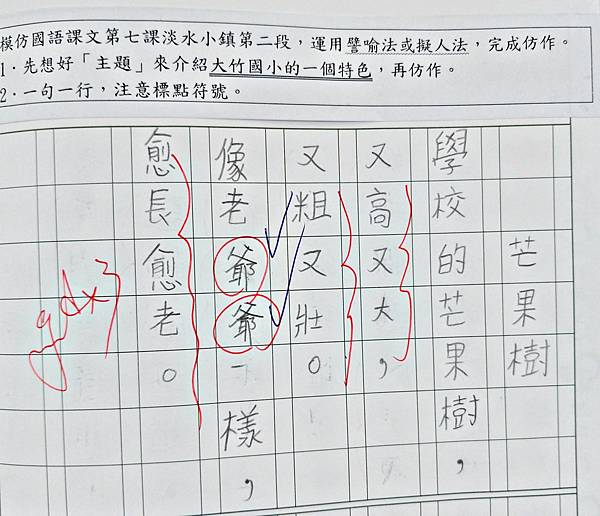 模仿國語課文第七課淡水小鎮第二段，運用譬喻法或擬人法，完成仿作。
1．先想好「主題」來介紹大竹國小的一個特色，再仿作。
2．一句一行，注意標點符號。
芒果樹
學校的芒果樹，
又高又大，
又粗又壯。
像老爺爺一樣，
愈長愈老。